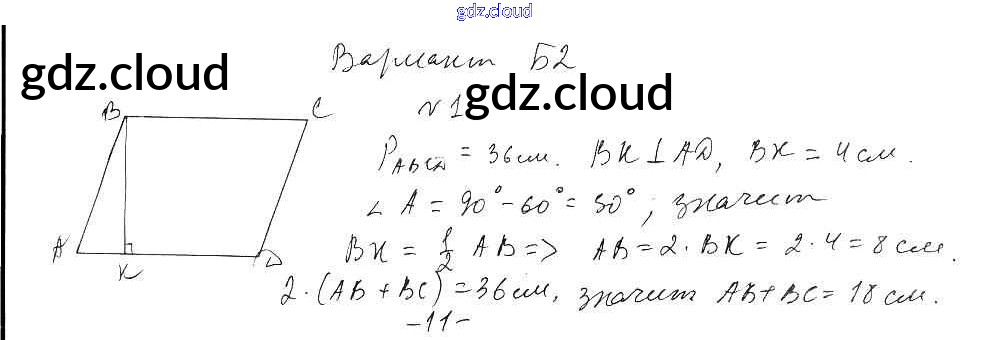 gdz.cloud
Вариант Б2
gdz.cloud
gdz.cloud
B C
№1
P ABCD = 36 см. BK ⊥ AD, BK = 4 см.
∠ A = 90° - 60° = 30°, значит
A K D
BK = 1/2 AB => AB = 2 · BK = 2 · 4 = 8 см.
2 · (AB + BC) = 36 см, значит AB + BC = 18 см.
- 11 -